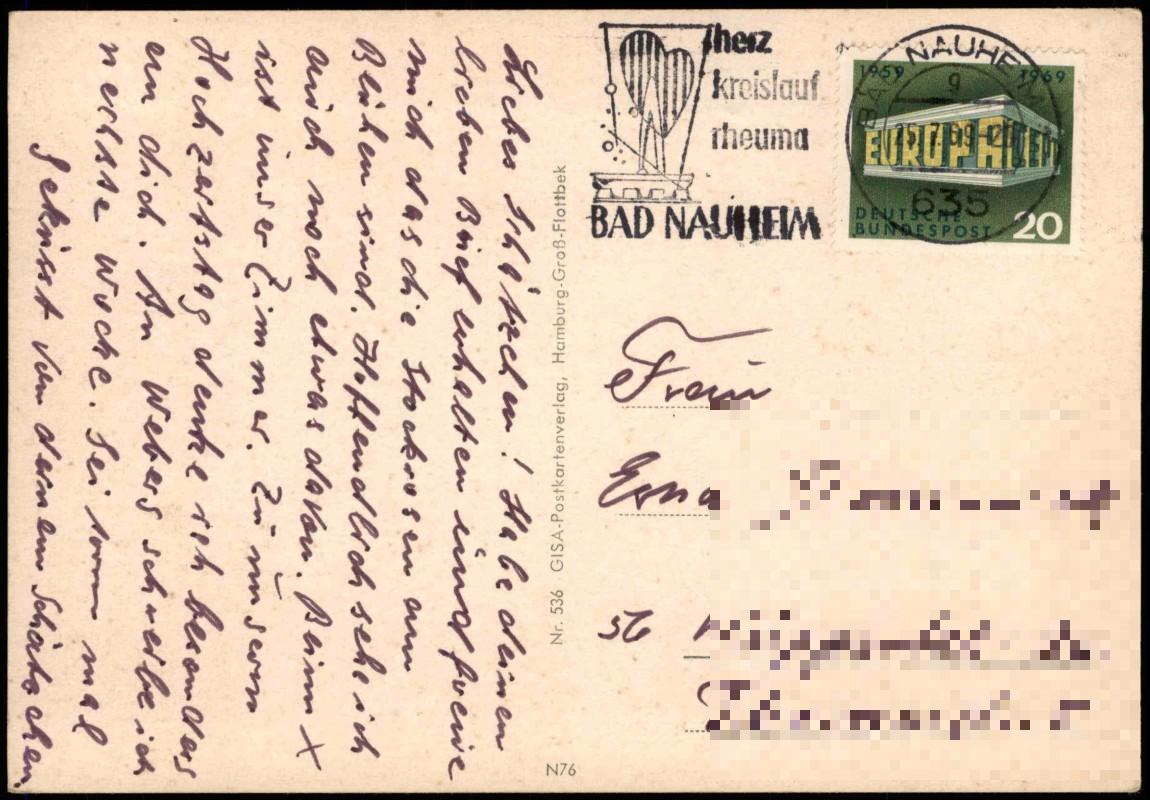 Liebes Schätzchen! Habe deinen
lieben Brief erhalten und freue
mich das die Stockrosen am
Blühen sind. Hoffendlich sehe ich
auch noch etwas davon. Beim X
ist unser Zimmer. Zu unserm
Hochzeitstag denke ich besonders
an dich. An Webers schreibe ich
nächste Woche. Sei mal
Geküsst von deinem Schätzchen.
Nr. 536 GISA-Postkartenverlag, Hamburg-Groß-Flottbek
N76
herz
kreislauf
rheuma
BAD NAUHEIM
BAD NAUHEIM
g
25.7.69
635
1959 1969
EUROPA CEPT
DEUTSCHE
BUNDESPOST 20
Frau
Erna
56